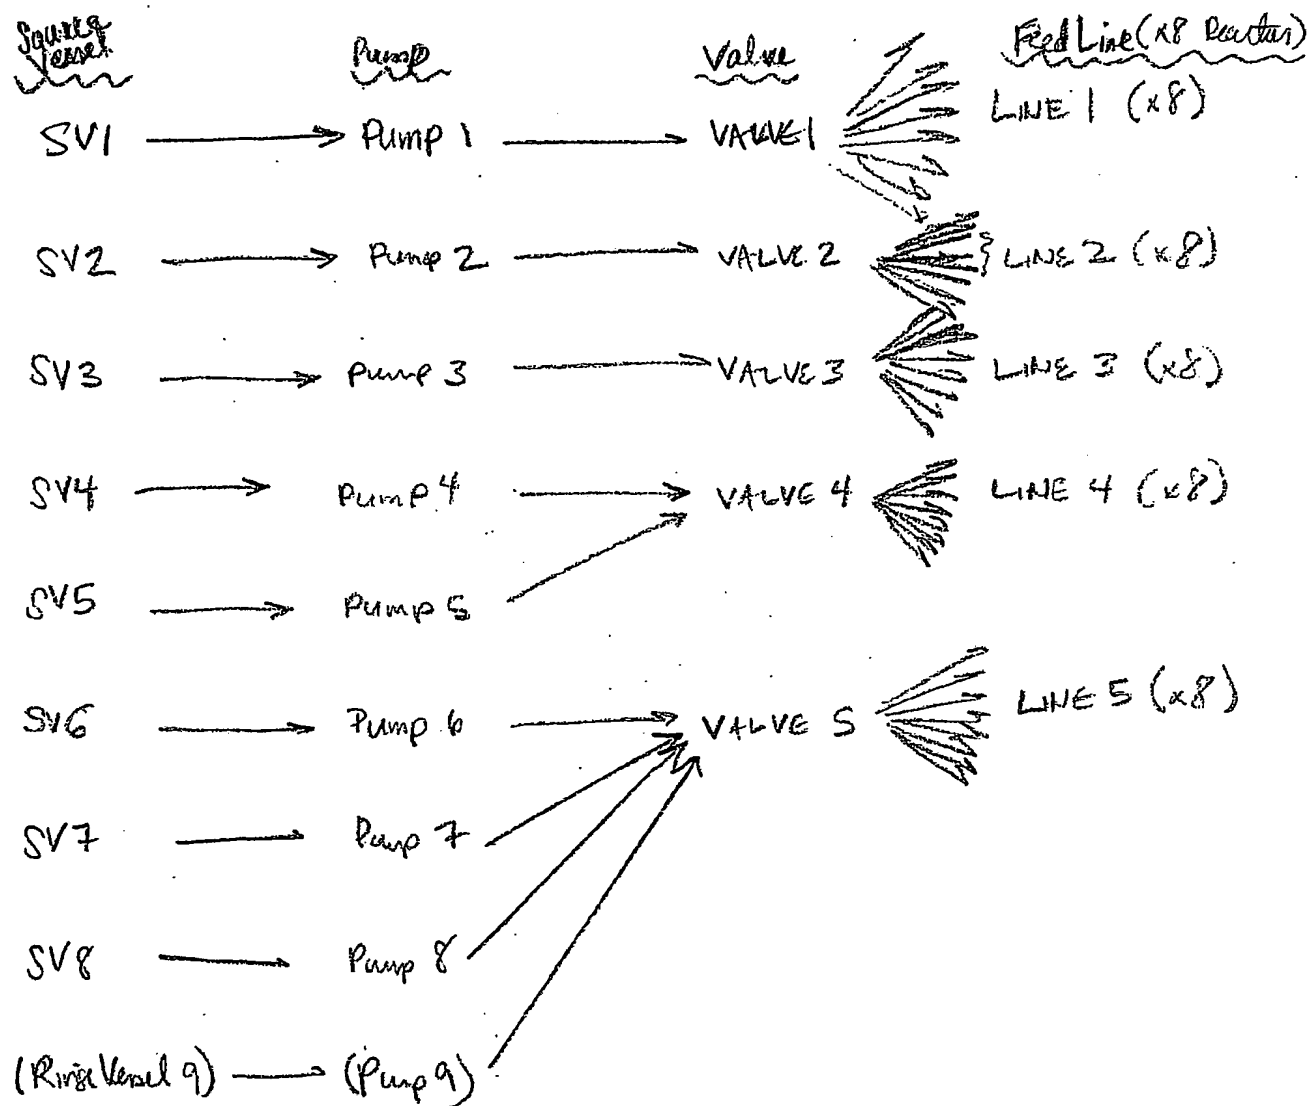 Source Vessel Pump Valve Feed Line (x8 Reactors)
SV1 Pump 1 VALVE 1 LINE 1 (x8)
SV2 Pump 2 VALVE 2 } LINE 2 (x8)
SV3 Pump 3 VALVE 3 LINE 3 (x8)
SV4 Pump 4 VALVE 4 LINE 4 (x8)
SV5 Pump 5
SV6 Pump 6 VALVE 5 LINE 5 (x8)
SV7 Pump 7
SV8 Pump 8
(Rinse Vessel 9) (Pump 9)